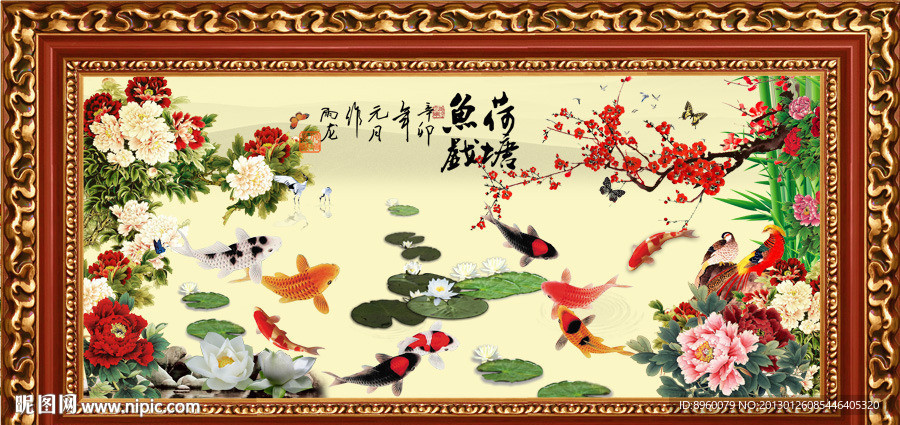 荷塘
魚戲
辛卯
年
元月
作
雨龙
昵图网 www.nipic.com
ID:8960079 NO:20130126085446405320